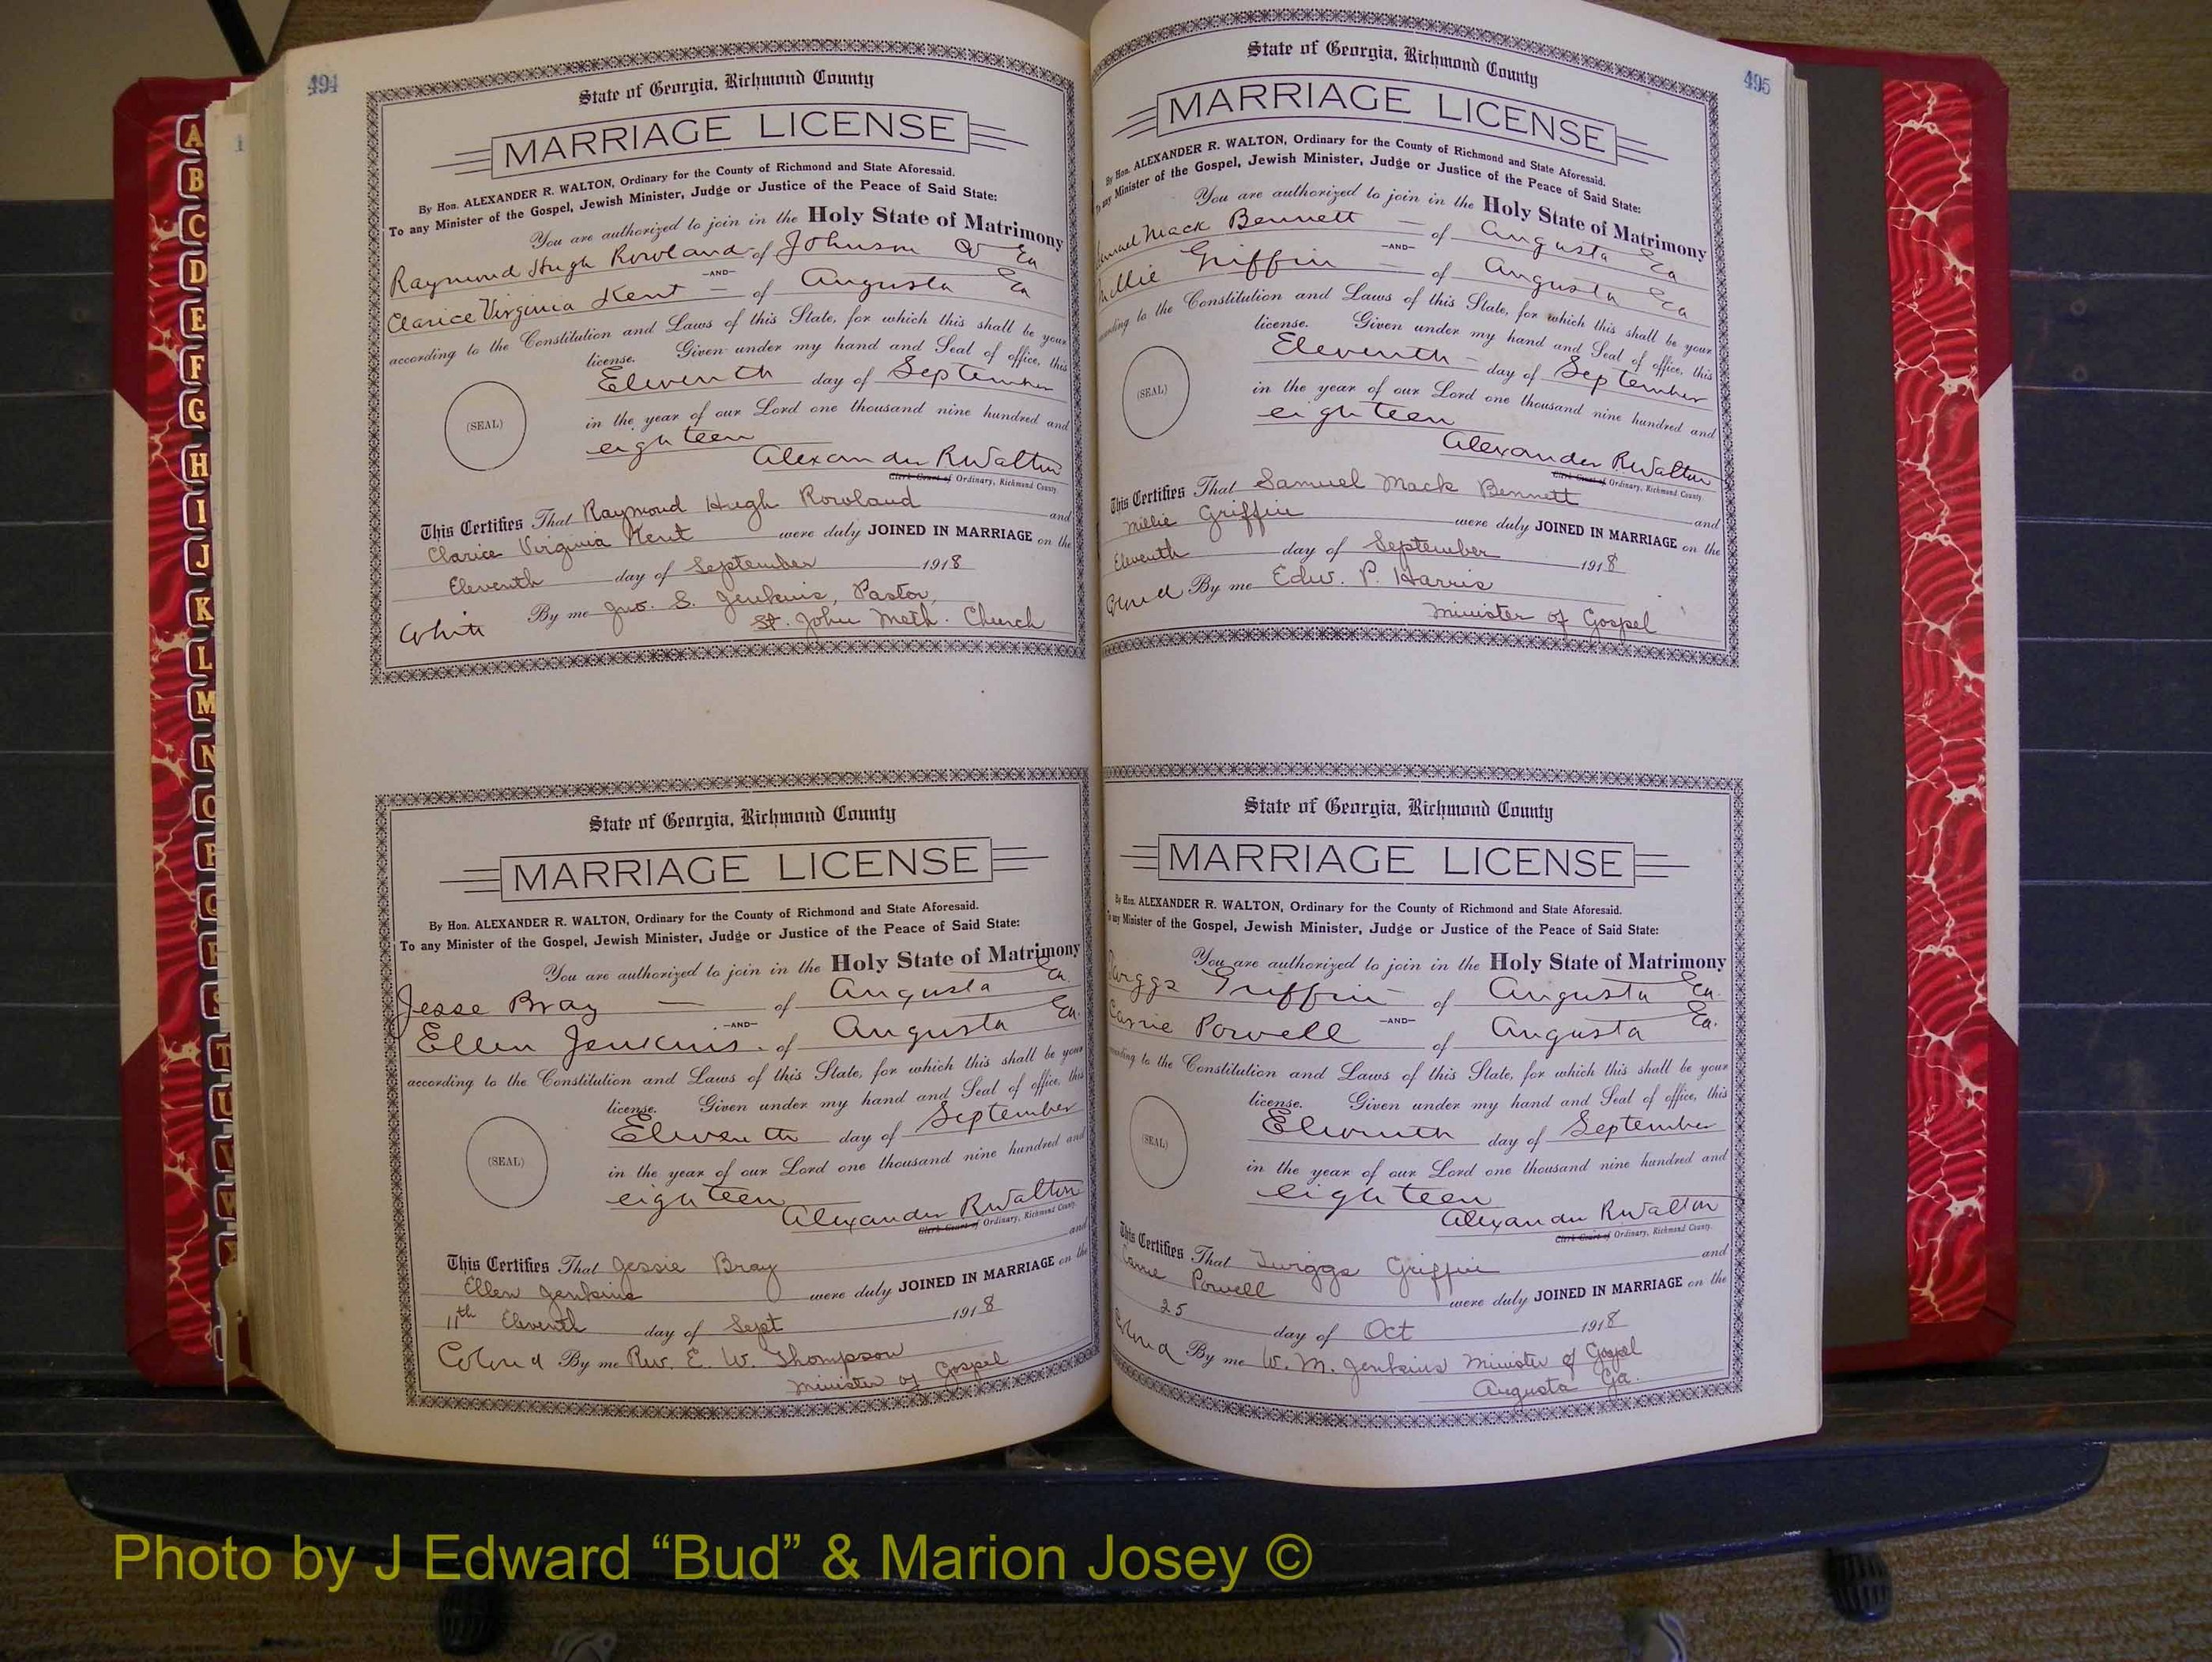 494
State of Georgia, Richmond County
MARRIAGE LICENSE
By Hon. ALEXANDER R. WALTON, Ordinary for the County of Richmond and State Aforesaid.
To any Minister of the Gospel, Jewish Minister, Judge or Justice of the Peace of Said State:
You are authorized to join in the Holy State of Matrimony
Raymond Hugh Rowland of Johnson Ga
—AND—
Clarice Virginia Kent — of Augusta Ga
according to the Constitution and Laws of this State, for which this shall be your
license. Given under my hand and Seal of office, this
Eleventh day of September
(SEAL)
in the year of our Lord one thousand nine hundred and
eighteen
Alexander R Walton
Clerk Court of Ordinary, Richmond County
This Certifies That Raymond Hugh Rowland and
Clarice Virginia Kent were duly JOINED IN MARRIAGE on the
Eleventh day of September 1918
By me Jno. S. Jenkins, Pastor,
White St. John Meth. Church
State of Georgia, Richmond County
MARRIAGE LICENSE
By Hon. ALEXANDER R. WALTON, Ordinary for the County of Richmond and State Aforesaid.
To any Minister of the Gospel, Jewish Minister, Judge or Justice of the Peace of Said State:
You are authorized to join in the Holy State of Matrimony
Jesse Bray — of Augusta Ga
—AND—
Ellen Jenkins. of Augusta Ga.
according to the Constitution and Laws of this State, for which this shall be your
license. Given under my hand and Seal of office, this
Eleventh day of September
(SEAL)
in the year of our Lord one thousand nine hundred and
eighteen
Alexander R Walton
Clerk Court of Ordinary, Richmond County
This Certifies That Jessie Bray and
Ellen Jenkins were duly JOINED IN MARRIAGE on the
11th Eleventh day of Sept 1918
Colored By me Rev. E. W. Thompson
Minister of Gospel
495
State of Georgia, Richmond County
MARRIAGE LICENSE
By Hon. ALEXANDER R. WALTON, Ordinary for the County of Richmond and State Aforesaid.
To any Minister of the Gospel, Jewish Minister, Judge or Justice of the Peace of Said State:
You are authorized to join in the Holy State of Matrimony
Samuel Mack Bennett — of Augusta Ga
—AND—
Millie Griffin — of Augusta Ga
according to the Constitution and Laws of this State, for which this shall be your
license. Given under my hand and Seal of office, this
Eleventh — day of September
(SEAL)
in the year of our Lord one thousand nine hundred and
eighteen
Alexander R Walton
Clerk Court of Ordinary, Richmond County
This Certifies That Samuel Mack Bennett and
Millie Griffin were duly JOINED IN MARRIAGE on the
Eleventh day of September 1918
Colored By me Edw. P. Harris
Minister of Gospel
State of Georgia, Richmond County
MARRIAGE LICENSE
By Hon. ALEXANDER R. WALTON, Ordinary for the County of Richmond and State Aforesaid.
To any Minister of the Gospel, Jewish Minister, Judge or Justice of the Peace of Said State:
You are authorized to join in the Holy State of Matrimony
Twiggs Griffin of Augusta Ga.
—AND—
Carrie Powell of Augusta Ga.
according to the Constitution and Laws of this State, for which this shall be your
license. Given under my hand and Seal of office, this
Eleventh day of September
(SEAL)
in the year of our Lord one thousand nine hundred and
eighteen
Alexander R Walton
Clerk Court of Ordinary, Richmond County.
This Certifies That Twiggs Griffin and
Carrie Powell were duly JOINED IN MARRIAGE on the
25 day of Oct 1918
Colored By me W. M. Jenkins Minister of Gospel
Augusta Ga.
A
B
C
D
E
F
G
H
I
J
K
L
M
N
O
P
Q
R
S
T
U
V
W
Photo by J Edward “Bud” & Marion Josey ©